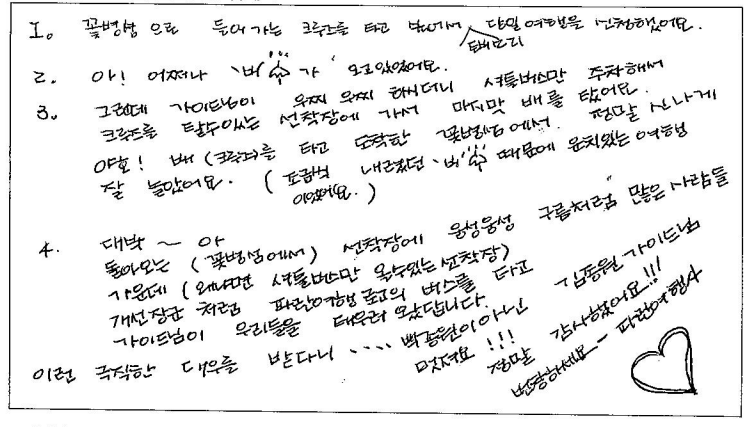 1. 꽃병섬 으로 들어가는 크루즈를 타고 밖에서 당일여행을 신청했어요.
2. 아! 어쩌나 "비가" 오고있었어요.
3. 그런데 가이드님이 우찌 우찌 하시더니 셔틀버스만 주차해서
크루즈를 탈수있는 선착장에 가서 마지막 배를 탔어요.
야호! 배(크루즈)를 타고 도착한 꽃병섬에서 정말 신나게
잘 놀았어요. (조금씩 내리던 "비" 때문에 운치있는 여행
이었어요.)
4. 대박 ~ 아
돌아오는 (꽃병섬에서) 선착장에 웅성웅성 구름처럼 많은 사람들
가운데 (왜냐면 셔틀버스만 올수있는 선착장)
개선장군 처럼 파란여행로고의 버스를 타고
가이드님이 우리들을 태우러 왔답니다.
이런 극직한 대우를 받다니 .... 빡공원이아닌 김동원 가이드님
멋져요!!! 정말 감사했어요!!!
번창하세요 - 파란여행사